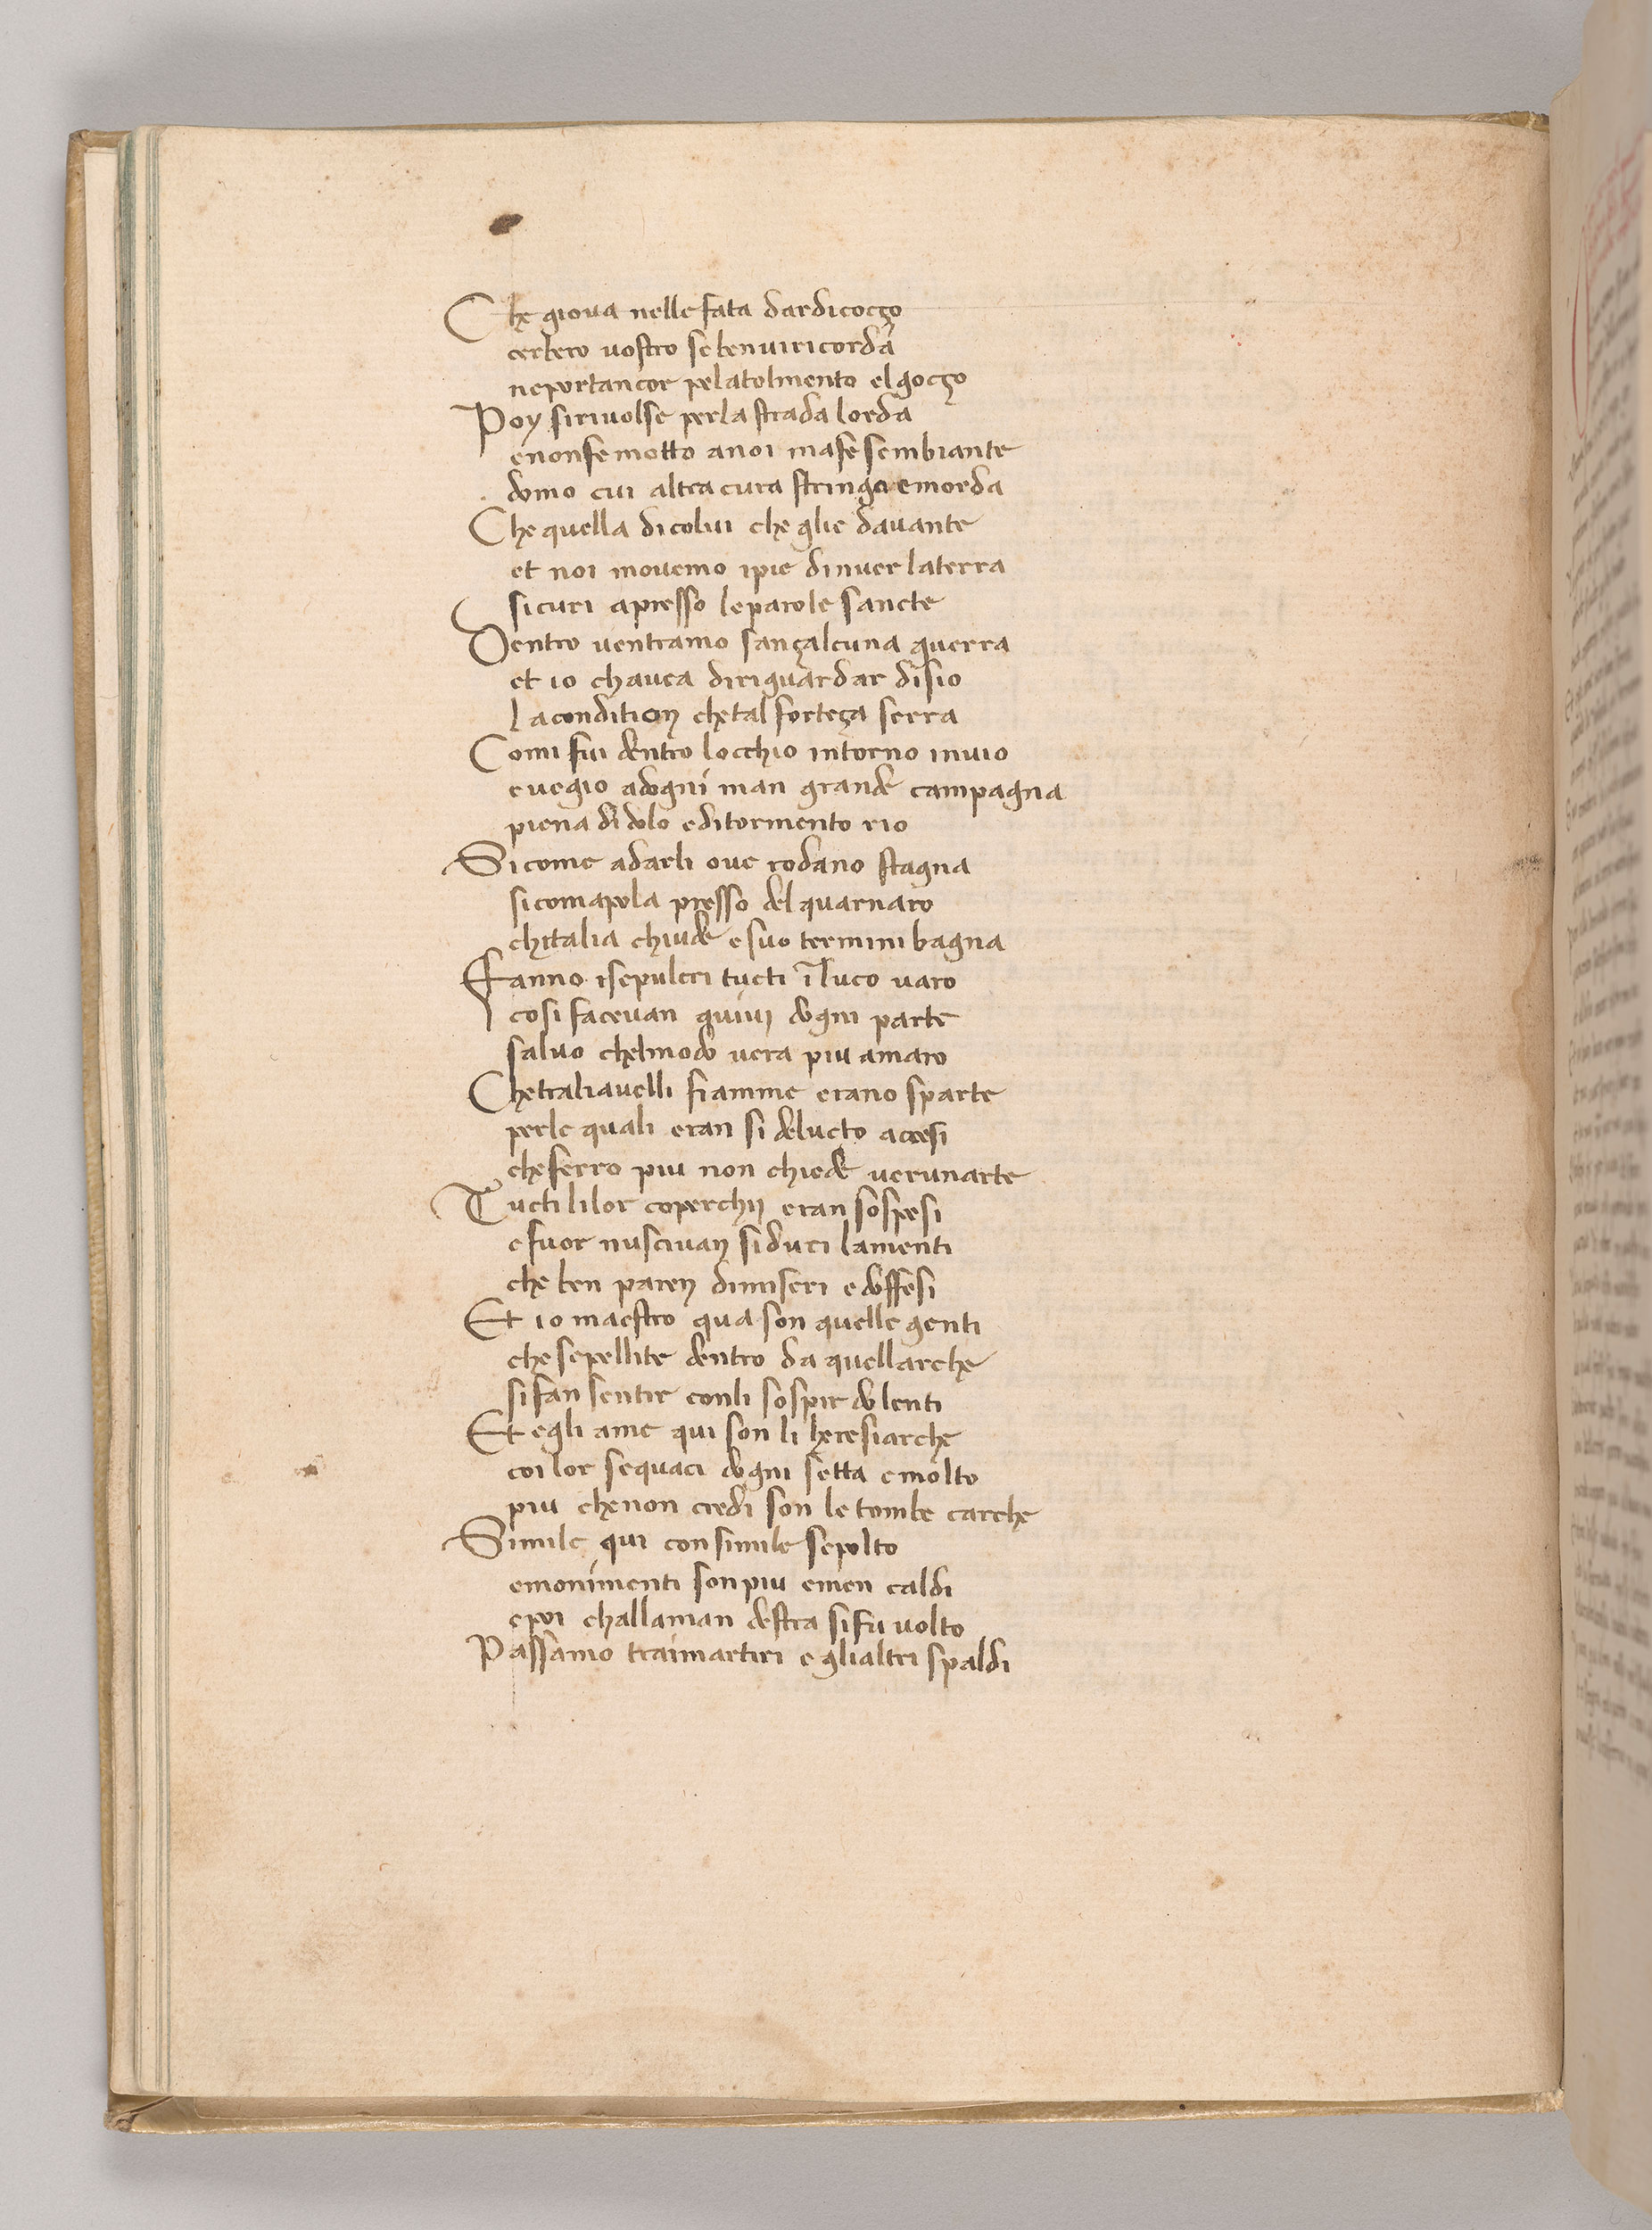 Che giova nelle fata dardicoczo
cerbero vostro se benviricorda
neportancor pelatolmento elgoczo
Poy sirivolse perla strada lorda
enonfemotto anoi mafe sembiante
domo cui altra cura stringa emorda
Che quella dicolui che glie davante
et noi movemo ipie dinver laterra
sicuri apresso leparole sancte
Dentro ventramo sanzalcuna guerra
et io chavea diriguardar disio
lacondition chetal forteza serra
Comi fui dentro locchio intorno invio
evegio adogni man grande campagna
piena didolo editormento rio
Sicome adarli ove rodano stagna
sicomapola presso del quarnaro
chitalia chiude esuo termini bagna
Fanno isepulcri tucti i̅ luco varo
cosi facevan quivi dogni parte
salvo chelmodo vera piu amaro
Chetraliavelli fiamme erano sparte
perle quali eran si deltucto accesi
cheferro piu non chiede verunarte
Tucti lilor coperchii eran sospesi
efuor nuscivan siduri lamenti
che ben paren dimiseri edoffesi
Et io maestro qua son quelle genti
che sepellite dentro da quellarche
sifan sentir conli sospir dolenti
Et egli ame qui son li heresiarche
coi lor sequaci dogni setta emolto
piu chenon credi son le tombe carche
Simile qui consimile sepolto
emonimenti son piu emen caldi
epoi challaman destra sifu volto
Passamo traimartiri eglialtri spaldi